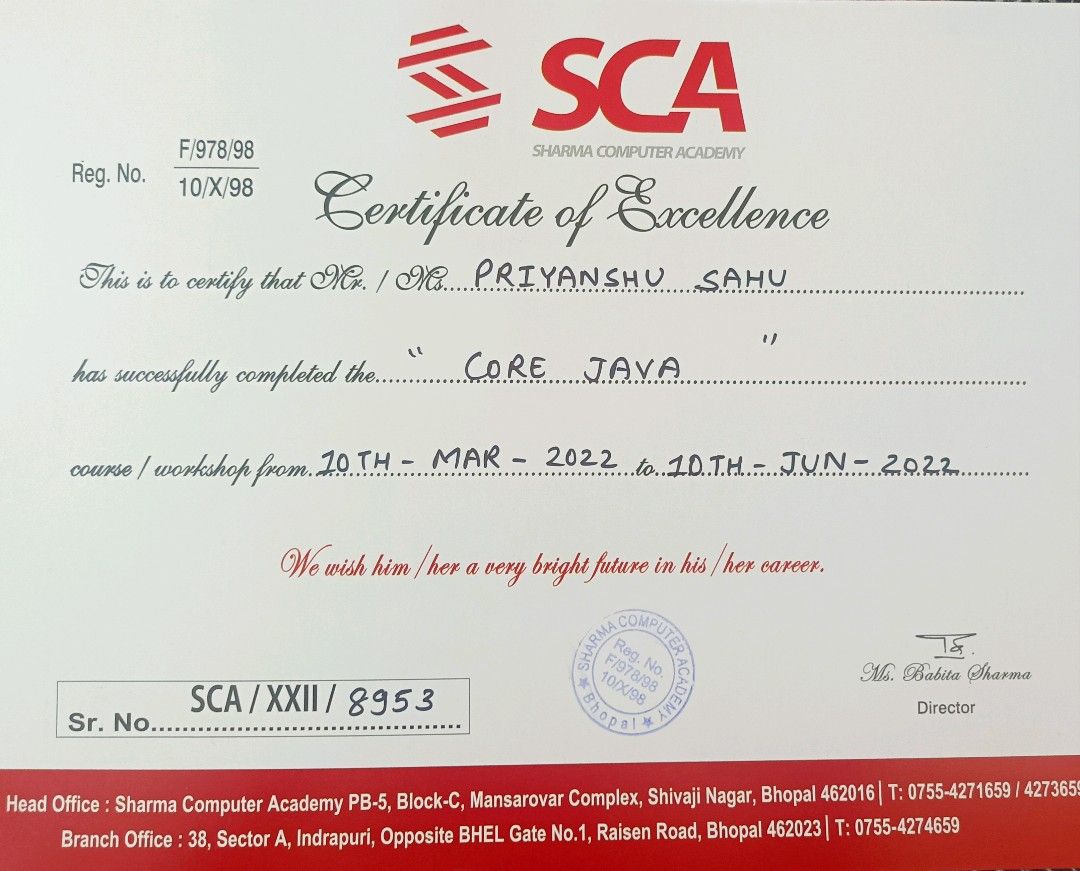 SCA
SHARMA COMPUTER ACADEMY
Reg. No. F/978/98
10/X/98
Certificate of Excellence
This is to certify that Mr. / Ms. PRIYANSHU SAHU
has successfully completed the " CORE JAVA "
course / workshop from 10TH - MAR - 2022 to 10TH - JUN - 2022
We wish him / her a very bright future in his / her career.
SHARMA COMPUTER ACADEMY
Reg. No.
F/978/98
10/X/98
★ Bhopal ★
Ms. Babita Sharma
Director
SCA / XXII / 8953
Sr. No.
Head Office : Sharma Computer Academy PB-5, Block-C, Mansarovar Complex, Shivaji Nagar, Bhopal 462016 | T: 0755-4271659 / 4273659
Branch Office : 38, Sector A, Indrapuri, Opposite BHEL Gate No.1, Raisen Road, Bhopal 462023 | T: 0755-4274659